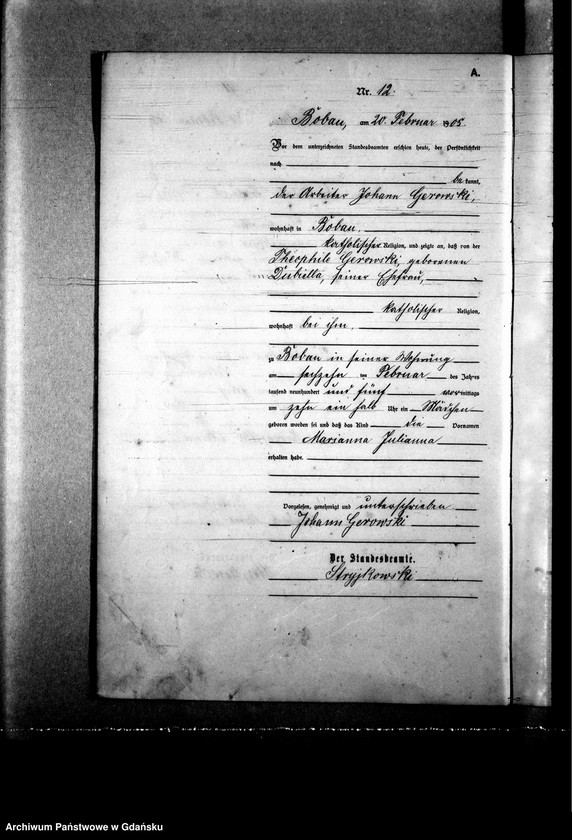 A.
Nr. 12.
Bobau, am 20. Februar 1905.
Vor dem unterzeichneten Standesbeamten erschien heute, der Persönlichkeit
nach
be kannt,
der Arbeiter Johann Gerowski,
wohnhaft in Bobau,
katholischer Religion, und zeigte an, daß von der
Theophile Gerowski, geborenen
Dubiella, seiner Ehefrau,
katholischer Religion,
wohnhaft bei ihm,
zu Bobau in seiner Wohnung
am sechzehn ten Februar des Jahres
tausend neunhundert und fünf vormittags
um zehn ein halb Uhr ein Mädchen
geboren worden sei und daß das Kind die Vornamen
Marianna Julianna
erhalten habe.
Vorgelesen, genehmigt und unterschrieben
Johann Gerowski
Der Standesbeamte.
Stryjkowski
Archiwum Państwowe w Gdańsku